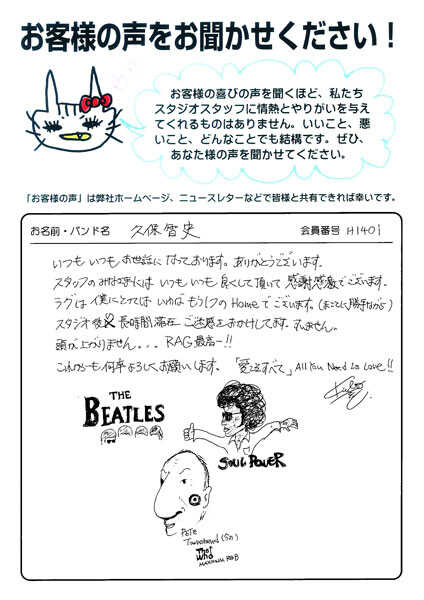 お客様の声をお聞かせください！
お客様の喜びの声を聞くほど、私たち
スタジオスタッフに情熱とやりがいを与え
てくれるものはありません。いいこと、悪
いこと、どんなことでも結構です。ぜひ、
あなた様の声を聞かせてください。
「お客様の声」は弊社ホームページ、ニュースレターなどで皆様と共有できれば幸いです。
お名前・バンド名 久保智史 会員番号 H1401
いつも いつも お世話に なっております。ありがとうございます。
スタッフのみなさまには いつも いつも 良くして頂いて 感謝感激でございます。
ラグは 僕にとっては いわば もう1つの Homeで ございます。(まことに勝手ながら)
スタジオ後 長時間滞在 ご迷惑をおかけしてます。すいません。
頭が上がりません... RAG最高ー!!
これからも何卒よろしくお願いします。「愛こそすべて」All You Need Is Love!!
THE
BEATLES
SOUL POWER
PETE
Townshend (50)
The
Who
MAXIMUM R&B